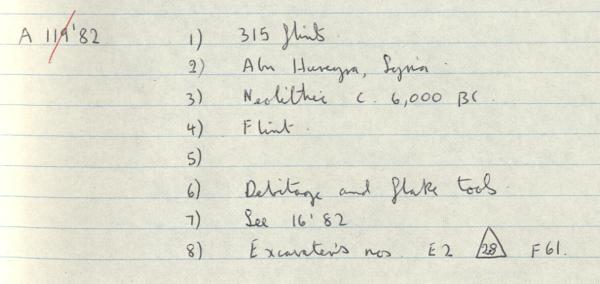 A 119'82 1) 315 flints.
2) Abu Hureyra, Syria.
3) Neolithic c. 6,000 BC.
4) Flint.
5)
6) Debitage and flake tools.
7) See 16'82
8) Excavator's nos. E2 28 F61.